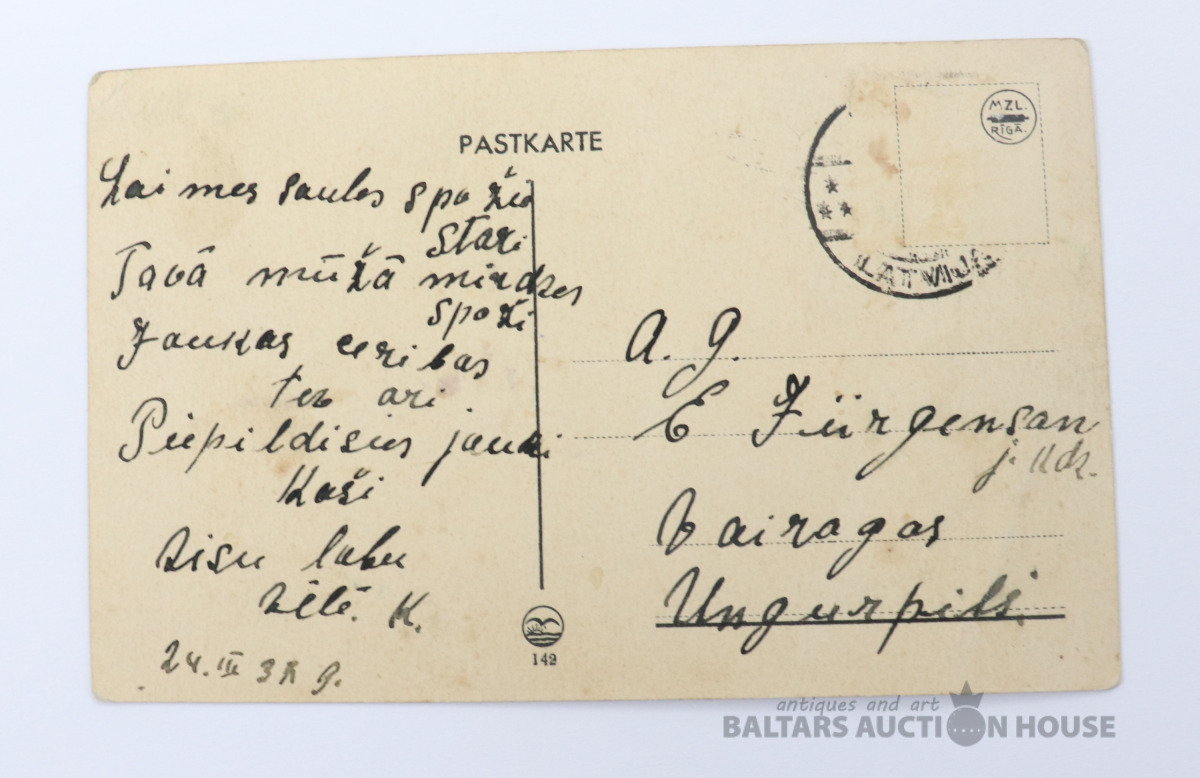 PASTKARTE
MZL.
RĪGA.
LATVIJA
Laimes saules spožie
stari
Tavā mūžā mirdzes
spoži
Jaukas ceribas
tev ari
Piepildisies jauki
koši
Visu labu
vēlē. K.
24. III 3 g.
A. g.
E Jürgensan
j. kdz.
Vairagas
Ungurpilī.
142
antiques and art
BALTARS AUCTION HOUSE